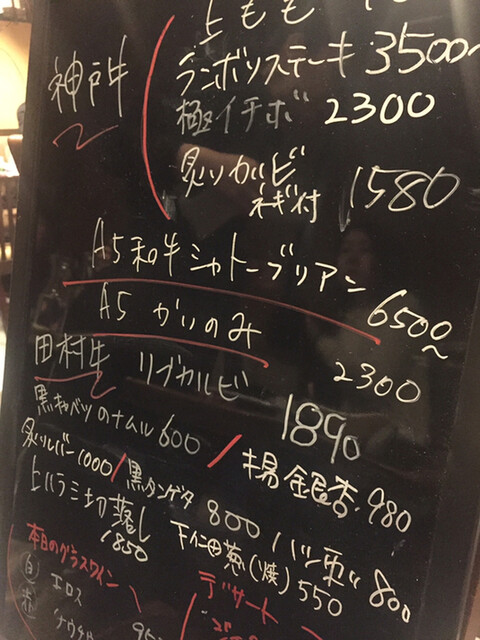 神戸牛
上もも
ランボソステーキ 3500〜
極イチボ 2300
炙りカルビ 1580
ネギ付
A5和牛シャトーブリアン 6500〜
A5 かいのみ 2300
田村牛 リブカルビ 1890
黒キャベツのナムル 600 / 揚銀杏 980
炙りレバー 1000 / 黒タンゲタ 800
上ハラミ切り落し 1850
下仁田葱(焼) 550
800
本日のグラスワイン
デザート
白
エロス
赤